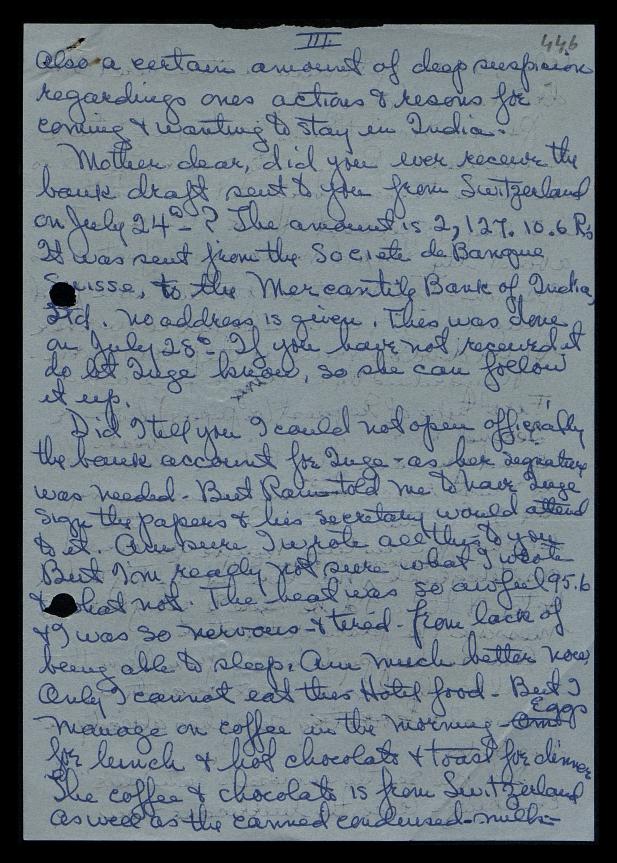 III
446
Also a certain amount of deep suspicion
regardings ones actions & resons for
coming & wanting to stay in India.
Mother dear, did you ever receive the
bank draft sent to you from Switzerland
on July 24th - ? The amount is 2,127.10.6 Rs
It was sent from the Societe de Banque
Suisse, to the Mercantile Bank of India,
Ltd. No address is given. This was done
on July 28th. If you have not received it
do let Inge know, so she can follow
it up.
Did I tell you I could not open officially
the bank account for Inge - as her signature
was needed - But Ram told me to have Inge
sign the papers & his secretary would attend
to it. Am sure I wrote all this to you
But I'm really not sure what I wrote
& what not. The heat was so awful 95.6
& I was so nervous & tired - from lack of
being able to sleep. Am much better now,
Only I cannot eat this Hotel food - But I
manage on coffee in the morning - Eggs
for lunch & hot chocolate & toast for dinner
The coffee & chocolate is from Switzerland
as well as the canned condensed-milk -